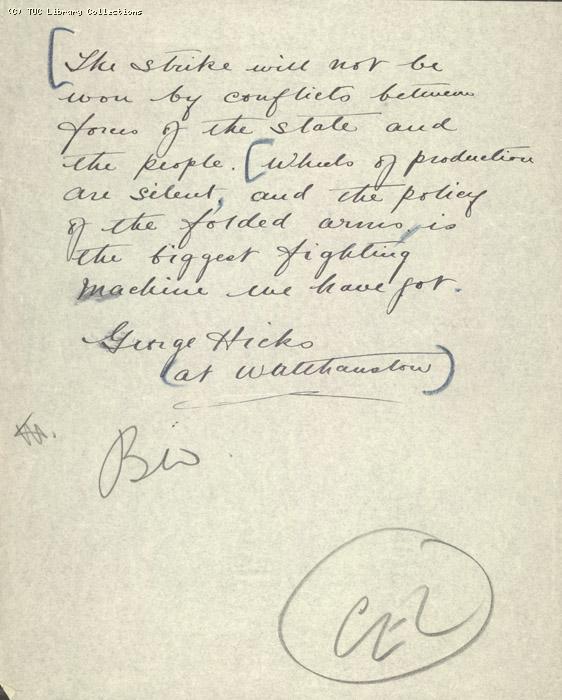 (C) TUC Library Collections
[The strike will not be
won by conflicts between
forces of the state and
the people. [Wheels of production
are silent, and the policy
of the folded arms, is
the biggest fighting
machine we have got.
George Hicks
(at Walthamstow)